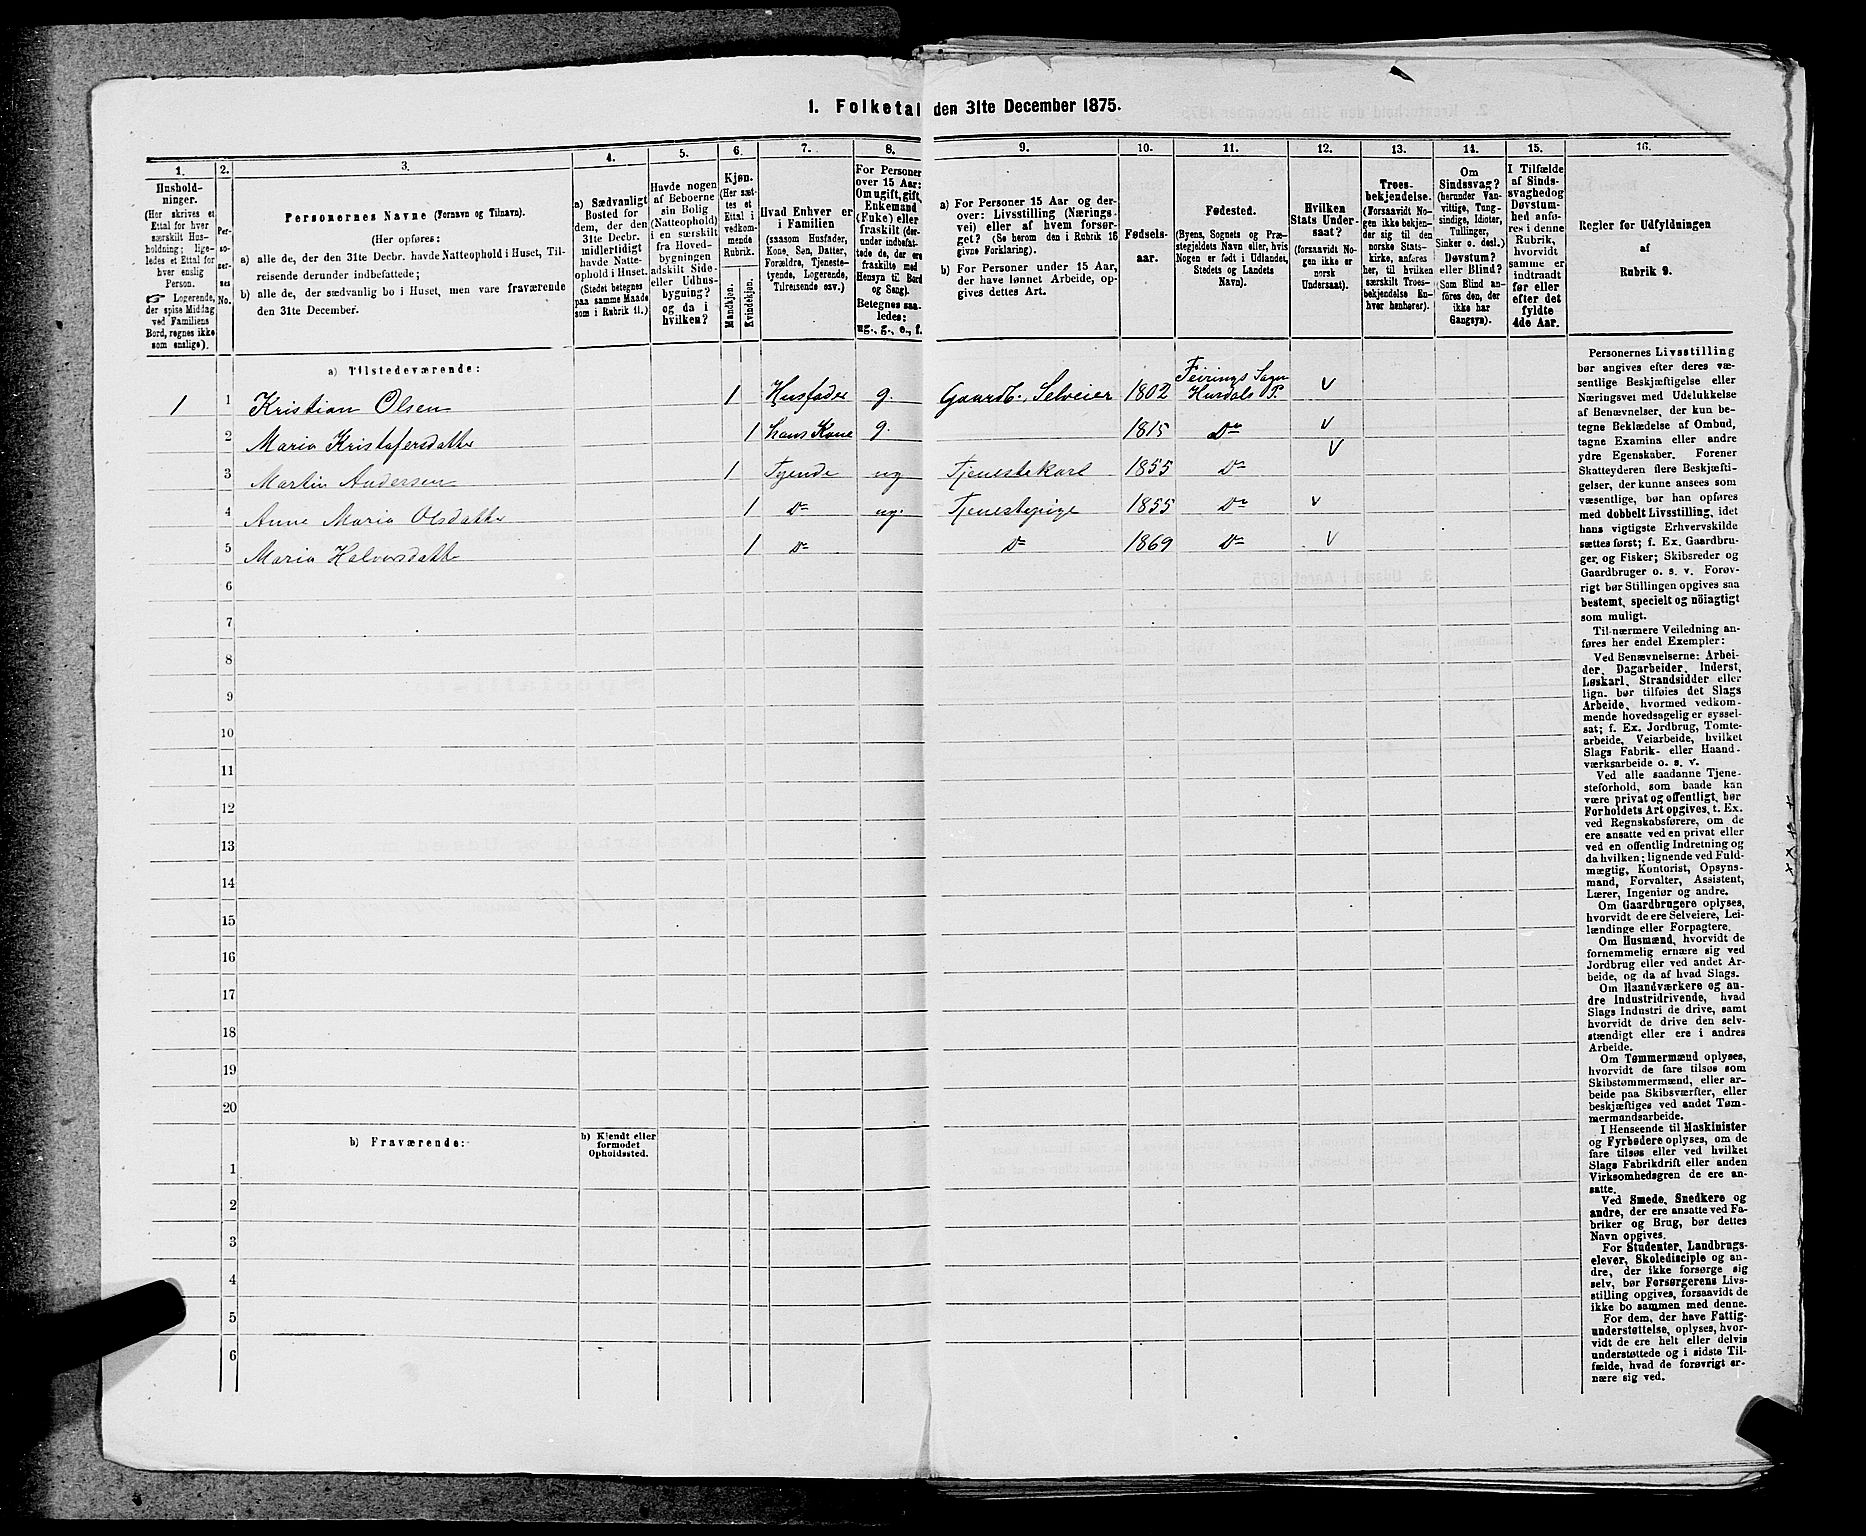 1. Folketal den 31te December 1875.
1.
2.
3.
4.
5.
6.
7.
8.
9.
10.
11.
12.
13.
14.
15.
16.
Hushold-
ninger.
(Her skrives et
Ettal for hver
særskilt Hus-
holdning; lige-
ledes et Ettal for
hver enslig
Person.
☞ Logerende,
der spise Middag
ved Familiens
Bord, regnes ikke
som enslige).
Per-
so-
ner-
nes
No.
Personernes Navne (Fornavn og Tilnavn).
(Her opføres:
a) alle de, der den 31te Decbr. havde Natteophold i Huset, Til-
reisende derunder indbefattede;
b) alle de, der sædvanlig bo i Huset, men vare fraværende
den 31te December.
a) Sædvanligt
Bosted for
dem, der den
31te Decbr.
midlertidigt
havde Natte-
ophold i Huset.
(Stedet betegnes
paa samme Maade
som i Rubrik 11.)
Havde nogen
af Beboerne
sin Bolig
(Natteophold)
i en særskilt
fra Hoved-
bygningen
adskilt Side-
eller Udhus-
bygning?
og da i
hvilken?
Kjøn.
(Her sæt-
tes et
Ettal i
vedkom-
mende
Rubrik.
Mandkjøn.
Kvindekjøn.
Hvad Enhver er
i Familien
(saasom Husfader,
Kone, Søn, Datter,
Forældre, Tjeneste-
tyende, Logerende,
Tilreisende osv.)
For Personer
over 15 Aar:
Om ugift, gift,
Enkemand
(Enke) eller
fraskilt (der-
under indbefat-
tede de, der ere
fraskilte med
Hensyn til Bord
og Seng).
Betegnes saa-
ledes:
ug., g., e., f.
a) For Personer 15 Aar og der-
over: Livsstilling (Nærings-
vei) eller af hvem forsør-
get? (Se herom den i Rubrik 16
givne Forklaring).
b) For Personer under 15 Aar,
der have lønnet Arbeide, op-
gives dettes Art.
Fødsels-
aar.
Fødested.
(Byens, Sognets og Præ-
stegjeldets Navn eller, hvis
Nogen er født i Udlandet,
Stedets og Landets
Navn).
Hvilken
Stats Under-
saat?
(forsaavidt No-
gen ikke er
norsk
Undersaat).
Troes-
bekjendelse.
(Forsaavidt No-
gen ikke bekjen-
der sig til den
norske Stats-
kirke, anføres
her, til hvilken
særskilt Troes-
bekjendelse En-
hver henhører).
Om
Sindssvag?
(herunder Van-
vittige, Tung-
sindige, Idioter,
Tullinger,
Sinker o. desl.)
Døvstum?
eller Blind?
(Som Blind an-
føres den, der
ikke har
Gangsyn).
I Tilfælde
af Sinds-
svaghed og
Døvstum-
hed anfø-
res i denne
Rubrik,
hvorvidt
samme er
indtraadt
før eller
efter det
fyldte
4de Aar.
Regler for Udfyldningen
af
Rubrik 9.
a) Tilstedeværende:
1 1 Kristian Olsen 1 Husfader g. Gaardb., Selveier 1802 Feirings Sogn Hurdals P. v
2 Maria Kristofersdatter 1 hans Kone g. 1815 Do v
3 Martin Andersen 1 Tyende ug Tjenestekarl 1855 Do v
4 Anne Maria Olsdatter 1 Do ug. Tjenestepige 1855 Do v
5 Maria Halvorsdatter 1 Do Do 1869 Do v
6
7
8
9
10
11
12
13
14
15
16
17
18
19
20
b) Fraværende:
b) Kjendt eller
formodet
Opholdssted.
1
2
3
4
5
6
Personernes Livsstilling
bør angives efter deres væ-
sentlige Beskjæftigelse eller
Næringsvei med Udelukkelse
af Benævnelser, der kun be-
tegne Beklædelse af Ombud,
tagne Examina eller andre
ydre Egenskaber. Forener
Skatteyderen flere Beskjæfti-
gelser, der kunne ansees som
væsentlige, bør han opføres
med dobbelt Livsstilling, idet
hans vigtigste Erhvervskilde
sættes først; f. Ex. Gaardbru-
ger og Fisker; Skibsreder og
Gaardbruger o. s. v. Forøv-
rigt bør Stillingen opgives saa
bestemt, specielt og nöiagtigt
som muligt.
Til nærmere Veiledning an-
føres her endel Exempler:
Ved Benævnelserne: Arbei-
der, Dagarbeider, Inderst,
Løskarl, Strandsidder eller
lign. bør tilføies det Slags
Arbeide, hvormed vedkom-
mende hovedsagelig er syssel-
sat; f. Ex. Jordbrug, Tomte-
arbeide, Veiarbeide, hvilket
Slags Fabrik- eller Haand-
værksarbeide o. s. v.
Ved alle saadanne Tjene-
steforhold, som baade kan
være privat og offentligt, bør
Forholdets Art opgives, t. Ex.
ved Regnskabsførere, om de
ere ansatte ved en privat eller
ved en offentlig Indretning og
da hvilken; lignende ved Fuld-
mægtig, Kontorist, Opsyns-
mand, Forvalter, Assistent,
Lærer, Ingeniør og andre.
Om Gaardbrugere oplyses,
hvorvidt de ere Selveiere, Lei-
lændinge eller Forpagtere.
Om Husmænd, hvorvidt de
fornemmelig ernære sig ved
Jordbrug eller ved andet Ar-
beide, og da af hvad Slags.
Om Haandværkere og an-
dre Industridrivende, hvad
Slags Industri de drive, samt
hvorvidt de drive den selv-
stændigt eller ere i andres
Arbeide.
Om Tømmermænd oplyses,
hvorvidt de fare tilsøs som
Skibstømmermænd, eller ar-
beide paa Skibsværfter, eller
beskjæftiges ved andet Tøm-
mermandsarbeide.
I Henseende til Maskinister
og Fyrbødere oplyses, om de
fare tilsøs eller ved hvilket
Slags Fabrikdrift eller anden
Virksomhedsgren de ere an-
satte.
Ved Smede, Snedkere og
andre, der ere ansatte ved Fa-
briker og Brug, bør dettes
Navn opgives.
For Studenter, Landbrugs-
elever, Skoledisciple og an-
dre, der ikke forsørge sig
selv, bør Forsørgerens Livs-
stilling opgives, forsaavidt de
ikke bo sammen med denne.
For dem, der have Fattig-
understøttelse, oplyses, hvor-
vidt de ere helt eller delvis
understøttede og i sidste Til-
fælde, hvad de forøvrigt er-
nære sig ved.